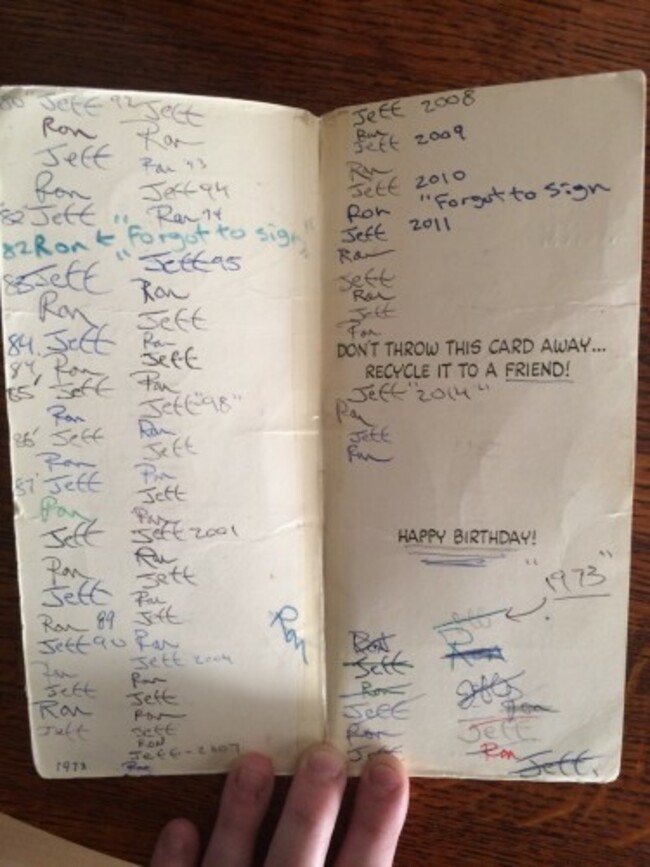 80" Jeff
Ron
Jeff
Ron
'82 Jeff
82 Ron ← "Forgot to sign"
83 Jeff
Ron
84. Jeff
84. Ron
85' Jeff
Ron
86' Jeff
Ron
87' Jeff
Ron
Jeff
Ron
Jeff
Ron 89
Jeff 90
Ron
Jeff
Ron
Jeff
1973
92 Jeff
Ron
Ron 93
Jeff 94
Ron 94
Jeff 95
Ron
Jeff
Ron
Jeff
Ron
Jeff "98"
Ron
Jeff
Ron
Jeff
Ron
Jeff 2001
Ron
Jeff
Ron
Jeff
Ron
Jeff 2004
Ron
Jeff
Ron
Jeff
Ron
Jeff - 2007
Ron
Ron
Jeff 2008
Ron
Jeff 2009
Ron
Jeff 2010
Ron "Forgot to sign
Jeff 2011
Ron
Jeff
Ron
Jeff
Ron
DON'T THROW THIS CARD AWAY...
RECYCLE IT TO A FRIEND!
Jeff "2014"
Ron
Jeff
Ron
HAPPY BIRTHDAY!
"1973"
Ron
Jeff
Ron
Jeff
Ron
Jeff
Jeff
Ron
Jeff
Ron
Jeff
Ron
Jeff.